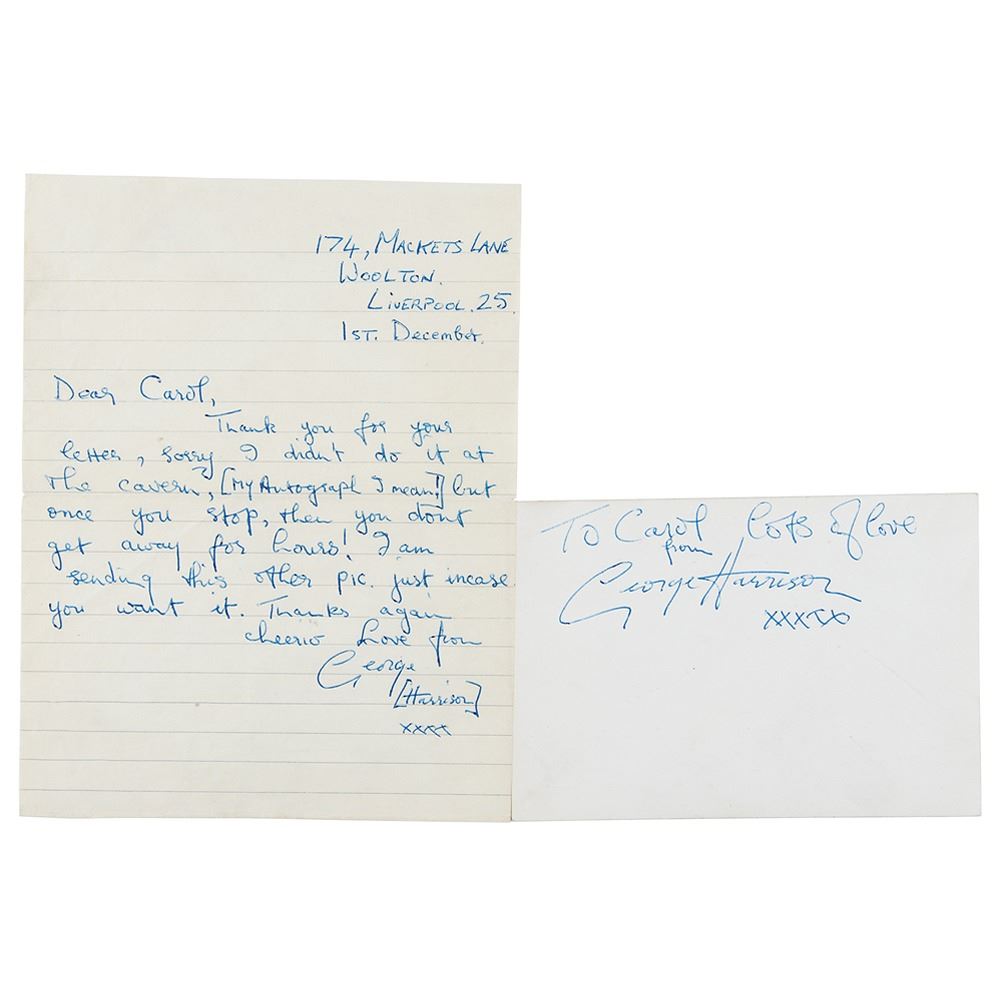 174, MACKETS LANE
WOOLTON.
LIVERPOOL. 25.
1ST. December.
Dear Carol,
Thank you for your
letter, sorry I didn't do it at
the cavern, [My Autograph I mean!] but
once you stop, then you dont
get away for hours! I am
sending this other pic. just incase
you want it. Thanks again
cheerio Love from
George
[Harrison]
xxxx
To Carol lots of love
from
George Harrison
xxxxx